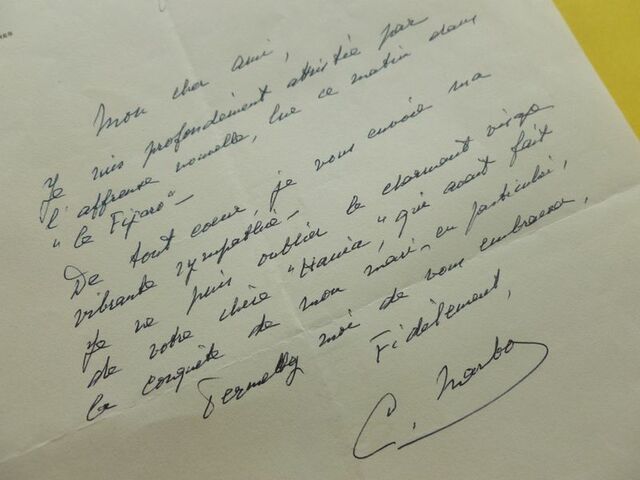 Mon cher ami,
Je suis profondément attristée par
l'affreuse nouvelle, lue ce matin dans
"Le Figaro" –
De tout coeur, je vous envoie ma
vibrante sympathie –
Je ne puis oublier le charmant visage
de votre chère "Hania", qui avait fait
la conquête de mon mari, en particulier,
Permettez moi de vous embrasser,
Fidèlement,
C. Marbo